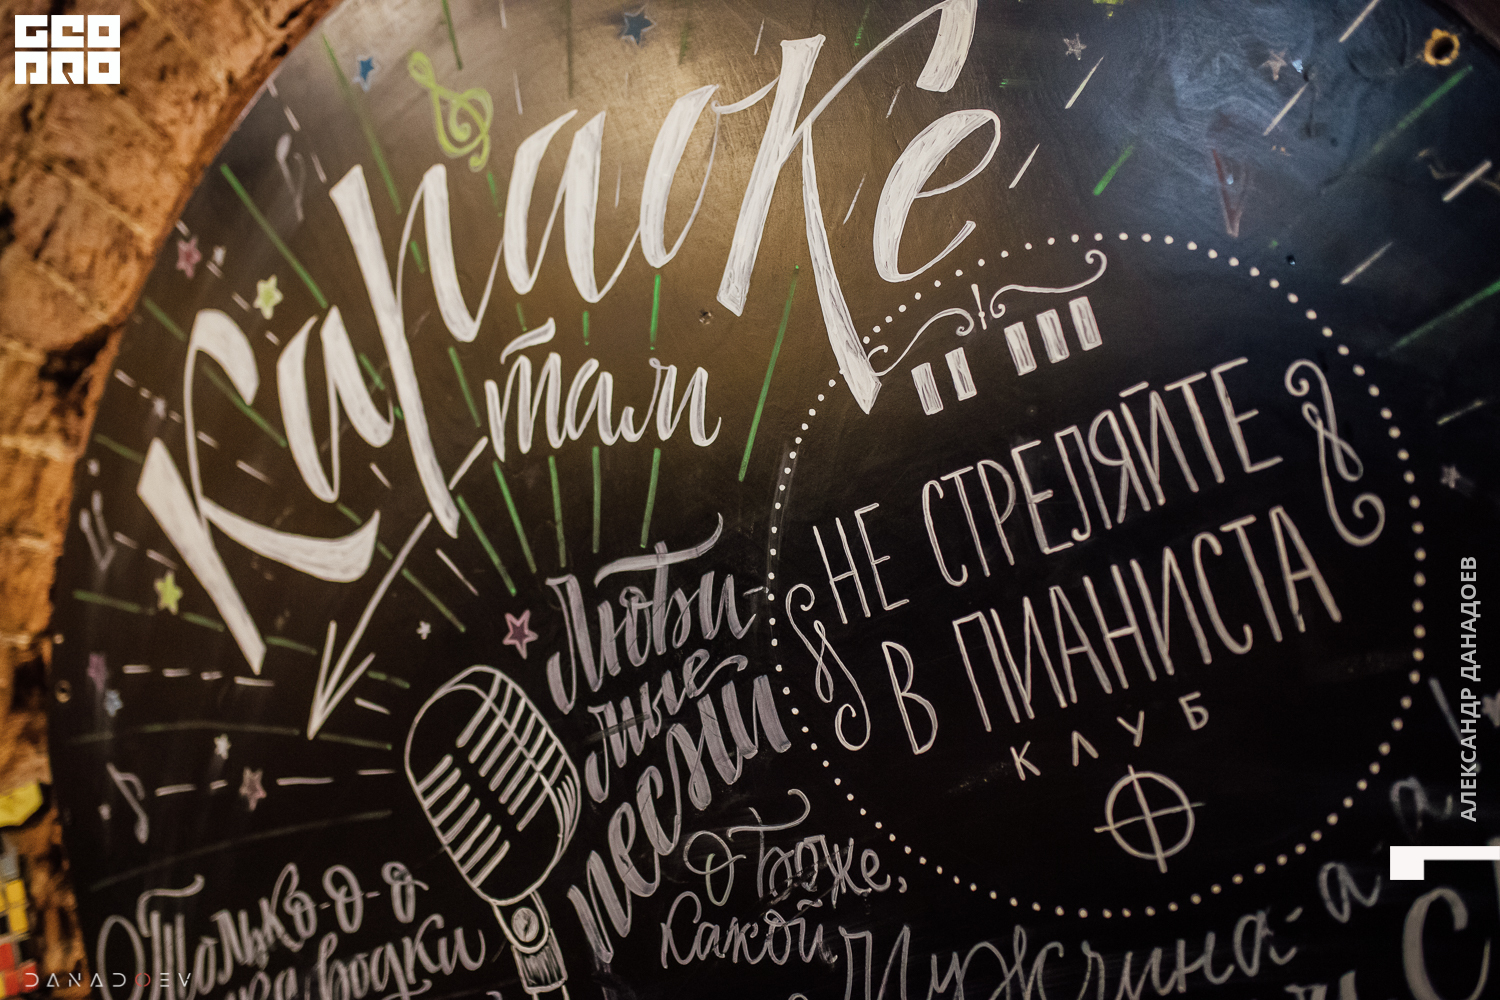 GEO
PRO
Караоке
там
!
НЕ СТРЕЛЯЙТЕ
В ПИАНИСТА
КЛУБ
Люби-
мые
песни
О Боже,
какой
Мужчина-а-а
Только-о-о
водки
DANADOEV
АЛЕКСАНДР ДАНАДОЕВ